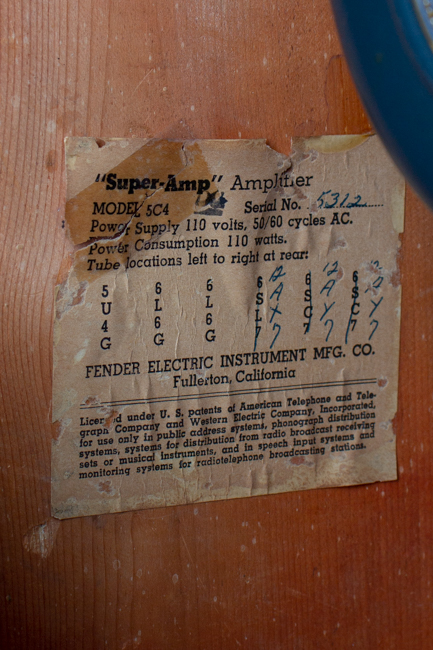 "Super-Amp" Amplifier
MODEL 5C4 Serial No. 5312
Power Supply 110 volts, 50/60 cycles AC.
Power Consumption 110 watts.
Tube locations left to right at rear:
5 6 6 6 6 6
U L L S S S
4 6 6 L C C
G G G 7 7 7
FENDER ELECTRIC INSTRUMENT MFG. CO.
Fullerton, California
Licensed under U. S. patents of American Telephone and Tele-
graph Company and Western Electric Company, Incorporated,
for use only in public address systems, phonograph distribution
systems, systems for distribution from radio broadcast receiving
sets or musical instruments, and in speech input systems and
monitoring systems for radiotelephone broadcasting stations.